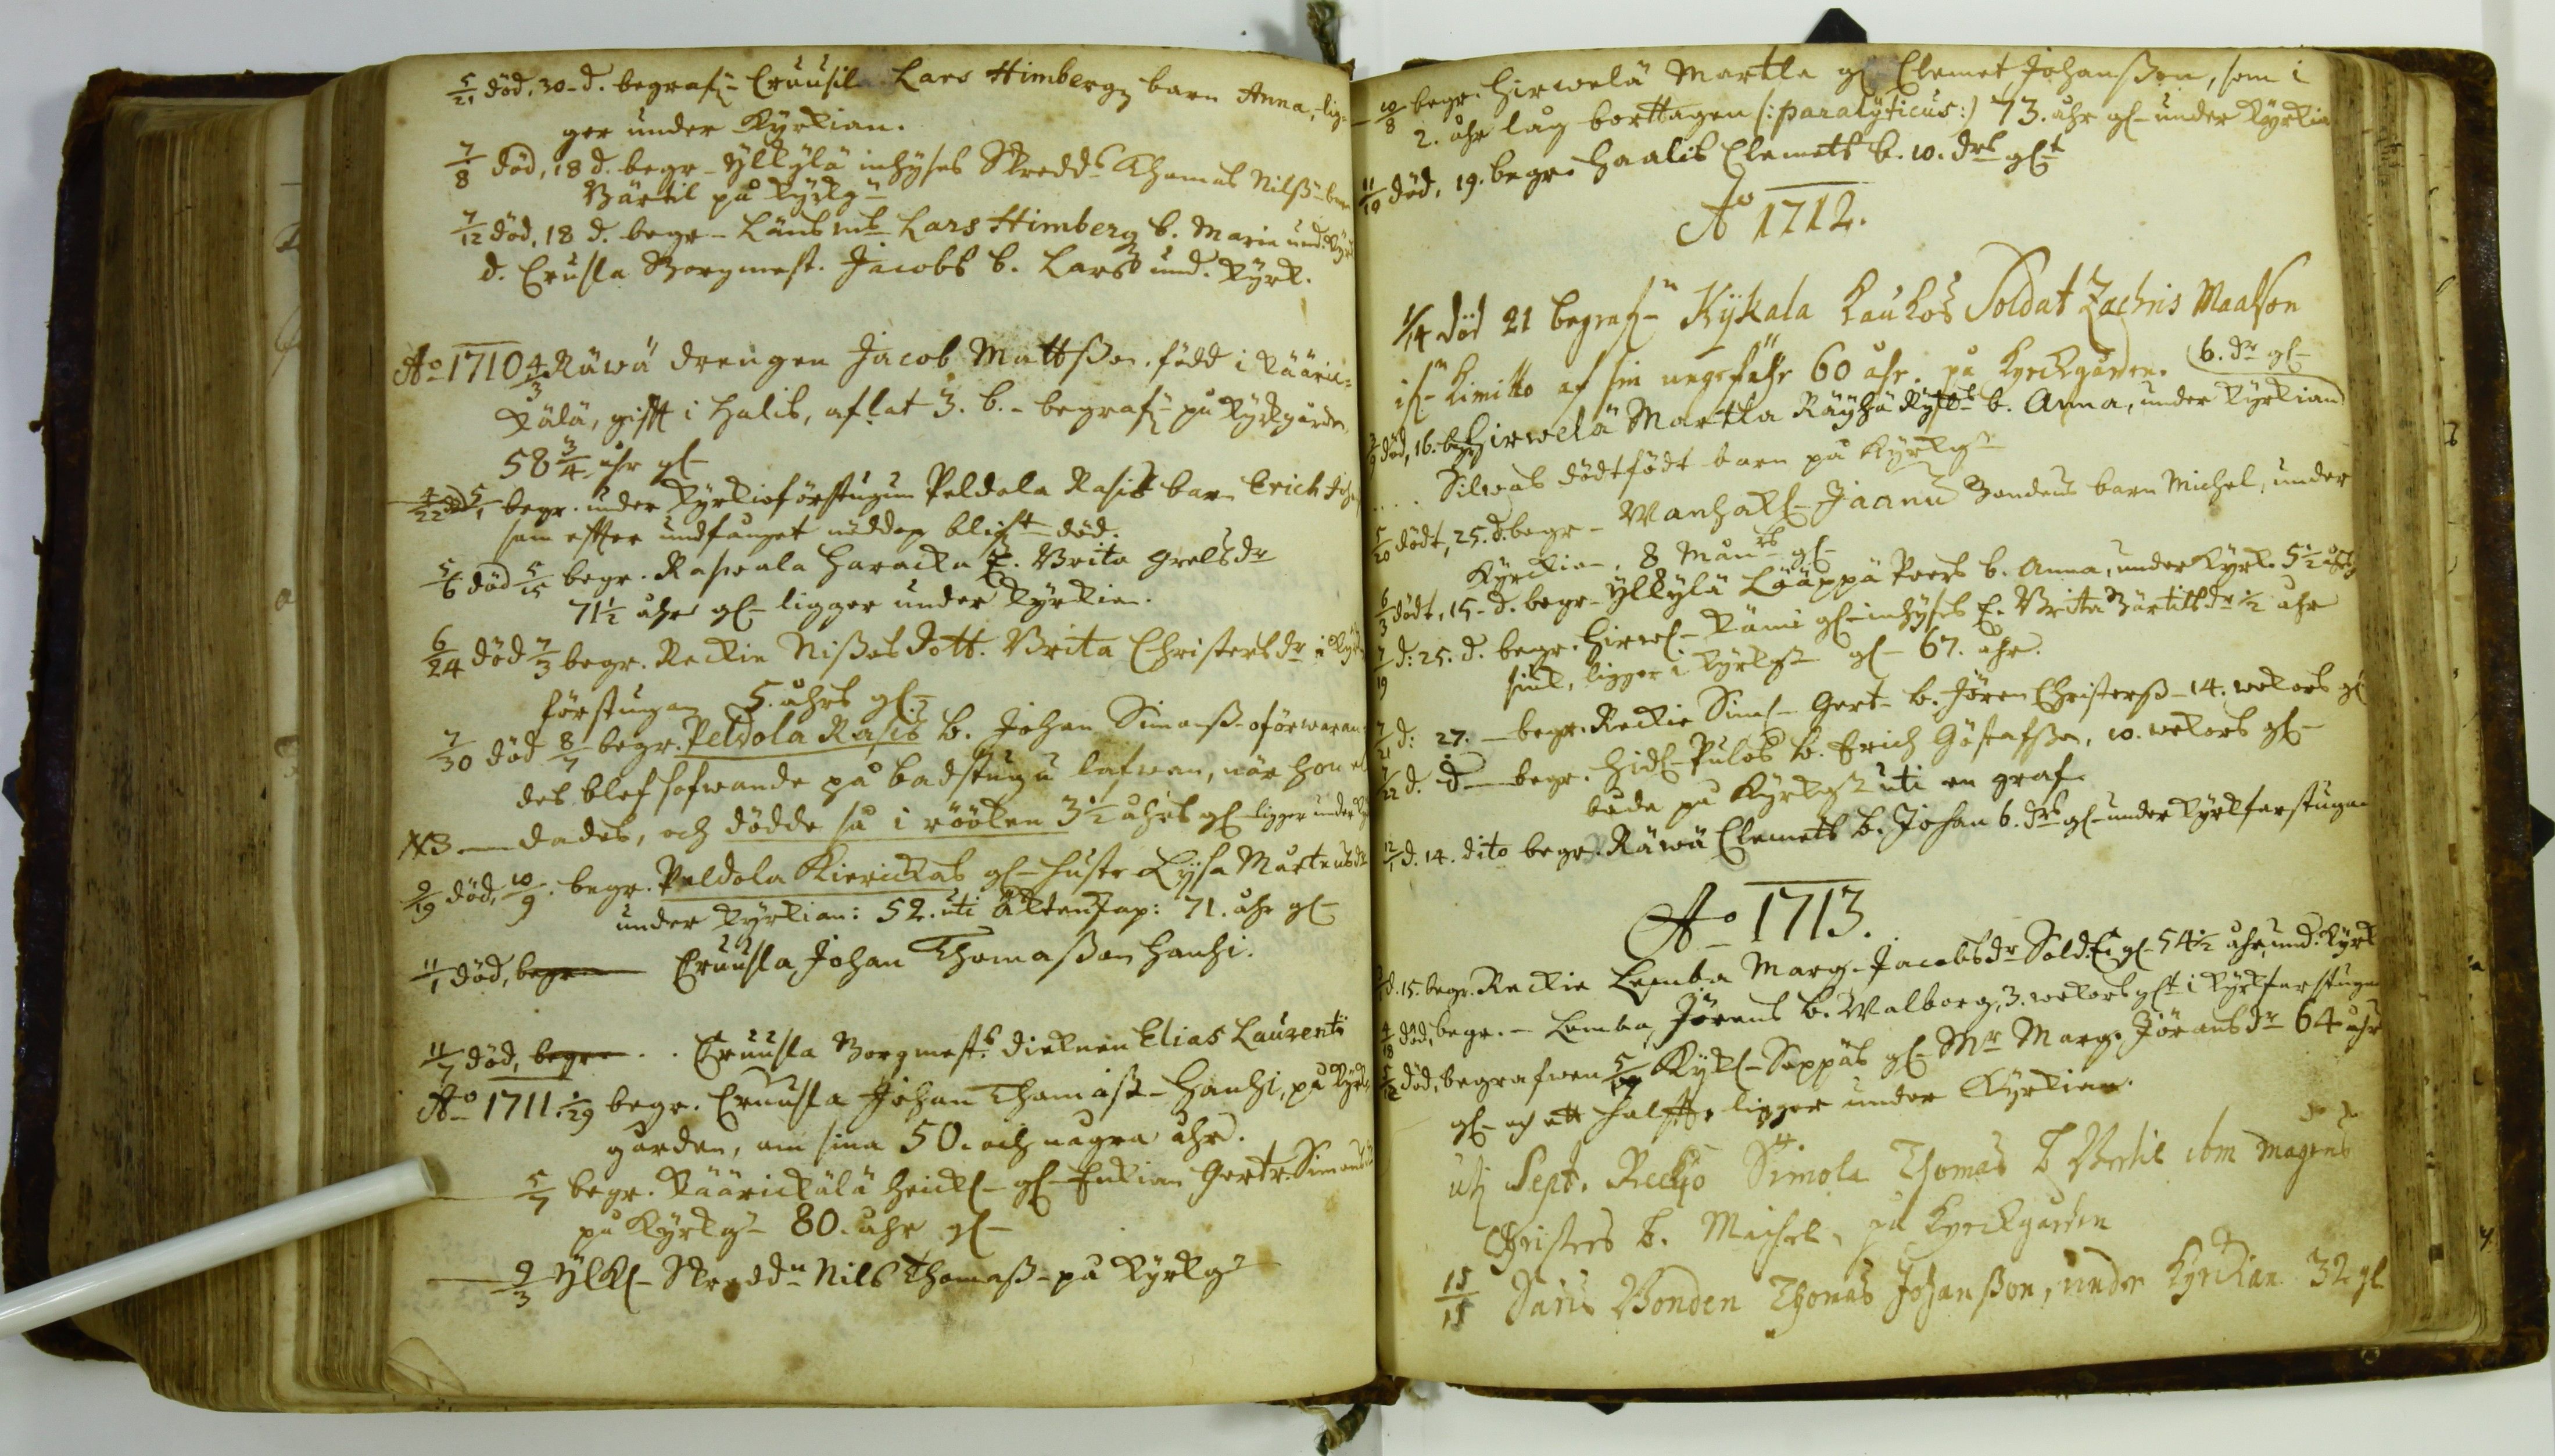 5/21 död, 30. d. begrafn Cruusila Lars Himbergz barn Anna, lig-
ger under Kyrkian.
7/8 död, 18 d. begr. Ylkylä inhyses Skredd. Thomas Nilß barn
Bärtil på kyrkg
7/12 död, 18 d. begr. Länsm Lars Himberg b. Maria und. kyrk
d. Crusla Borgmest. Jacobs b. Lars und. kyrk.
Ao 1710 4/3 Räwä drengen Jacob Mattßon. född i Kääric-
kälä, gifft i Halis, aflat 3. b. begrafn på kyrkgården
58 3/4 åhr gl
4/22 död 5/1 begr. under kyrkioförstugun Peldola Rasis barn Erich
som effter undfånget nöddop blifft död.
5/6 död 5/15 begr. Raswala Haracka E. Brita Grelsdr
71½ åhr gl ligger under kyrkian.
6/24 död 7/3 begr. Reckie Nißas Dott. Brita Christersdr i kyrk
förstugan 5. åhrs gl.
7/30 död 8/7 begr. Peldola Rasis b. Johan Simonß oförwaran-
des blef sofwande på badstugu lafwan, när hon el
NB dades, och dödde så i rööken 3½ åhrs gl ligger under ky
9/19 död, 10/9 begr. Peldola Kierickas gl hustr Lysa Mårtensdr
under kyrkian: 52. uti Äktenskap: 71. åhr gl
11/1 död, begr Cruusla Johan Thomaßon Hanhi.
11/7 död, begr . . Cruusla Borgmests dieknen Elias Laurenti
Ao 1711. 1/29 begr. Cruusla Johan Thomasß Hanhi, på kyrk-
gården, om sina 50. och några åhr.
5/7 begr. Käärickälä Heickl gl Enkian Gertr. Simons
på Kyrkg 80. åhr gl
9/3 Ylkl Skreddn Nils Thomaß på kyrkg
10/8 begr. Hirwelä Martla gl Clemet Johanßon, som i
2. åhr låg borttagen (:paralyticus:) 73. åhr gl under kyrkia
11/10 död, 19. begr. Haalis Clemets b. 10. drs glt
Ao 1712.
1/14 död 21 begrafn Kykala Kaukos Soldat Zachris Matsson
ifn Kimitto af sin ungefähr 60 åhr. på Kyrckgården.
6. dr gl
2/9 död, 16. begr Hirwelä Martla Räyhä b. Anna, under kyrkian
. . Silwas dödtfödt barn på Kyrkg
5/20 dödt, 25. d. begr Wanhakl Jaanu Bondens barn Michel, under
Kyrkian, 8 Månrs gl
6/3 dödt, 15. d. begr Ylkylä Lääppä Peers b. Anna, under kyrk. 5½
7/19 d: 25. d. begr. Hirwl Kämi gl inhyses E. Brita Bärtilsdr ½ åhr
siuk, ligger i kyrkg gl 67. åhr.
7/21 d: 27. begr. Reckie Siml Gert b. Jören Christerß 14. wekors gl
7/22 d. d begr. Hidl Pulos b. Erich Göstafßon, 10. wekors gl
bäda på Kyrkg uti en graf.
12/1 d. 14. dito begr. Räwä Clemets b. Johan 6. drs gl under kyrkferstugan
Ao 1713.
d. 15. begr. Reckie Lemba Marg. Jacobsdr Sold. E. gl 54½ åhr, und. kyrk
4/18 död, begr. Lemba Jörens b. Walborg, 3. wekors glt i kyrkferstugan
5/12 död, begrafwen 5/19 Kykl Seppäs gl Mr Marg. Jöransdr 64 åhr
gl och ett halfft, ligger under Kyrkian.
utj Sept. Reckio Simola Thomas b Bertil ibm Magens
Christers b. Michel, på Kyrckgården
15/15 Daris Bonden Thomas Johanßon, under Kyrckian 32 gl